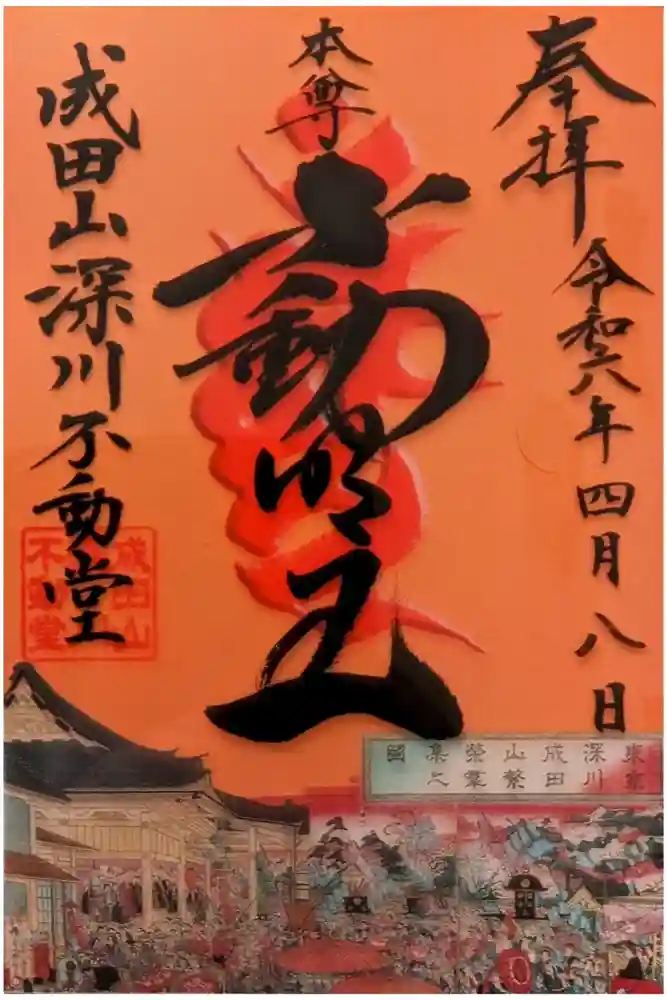 奉拝
令和六年四月八日
本尊
不動明王
成田山深川不動堂
成田山
不動堂
東京
深川
成田
山繁
栄羣
集之
圖